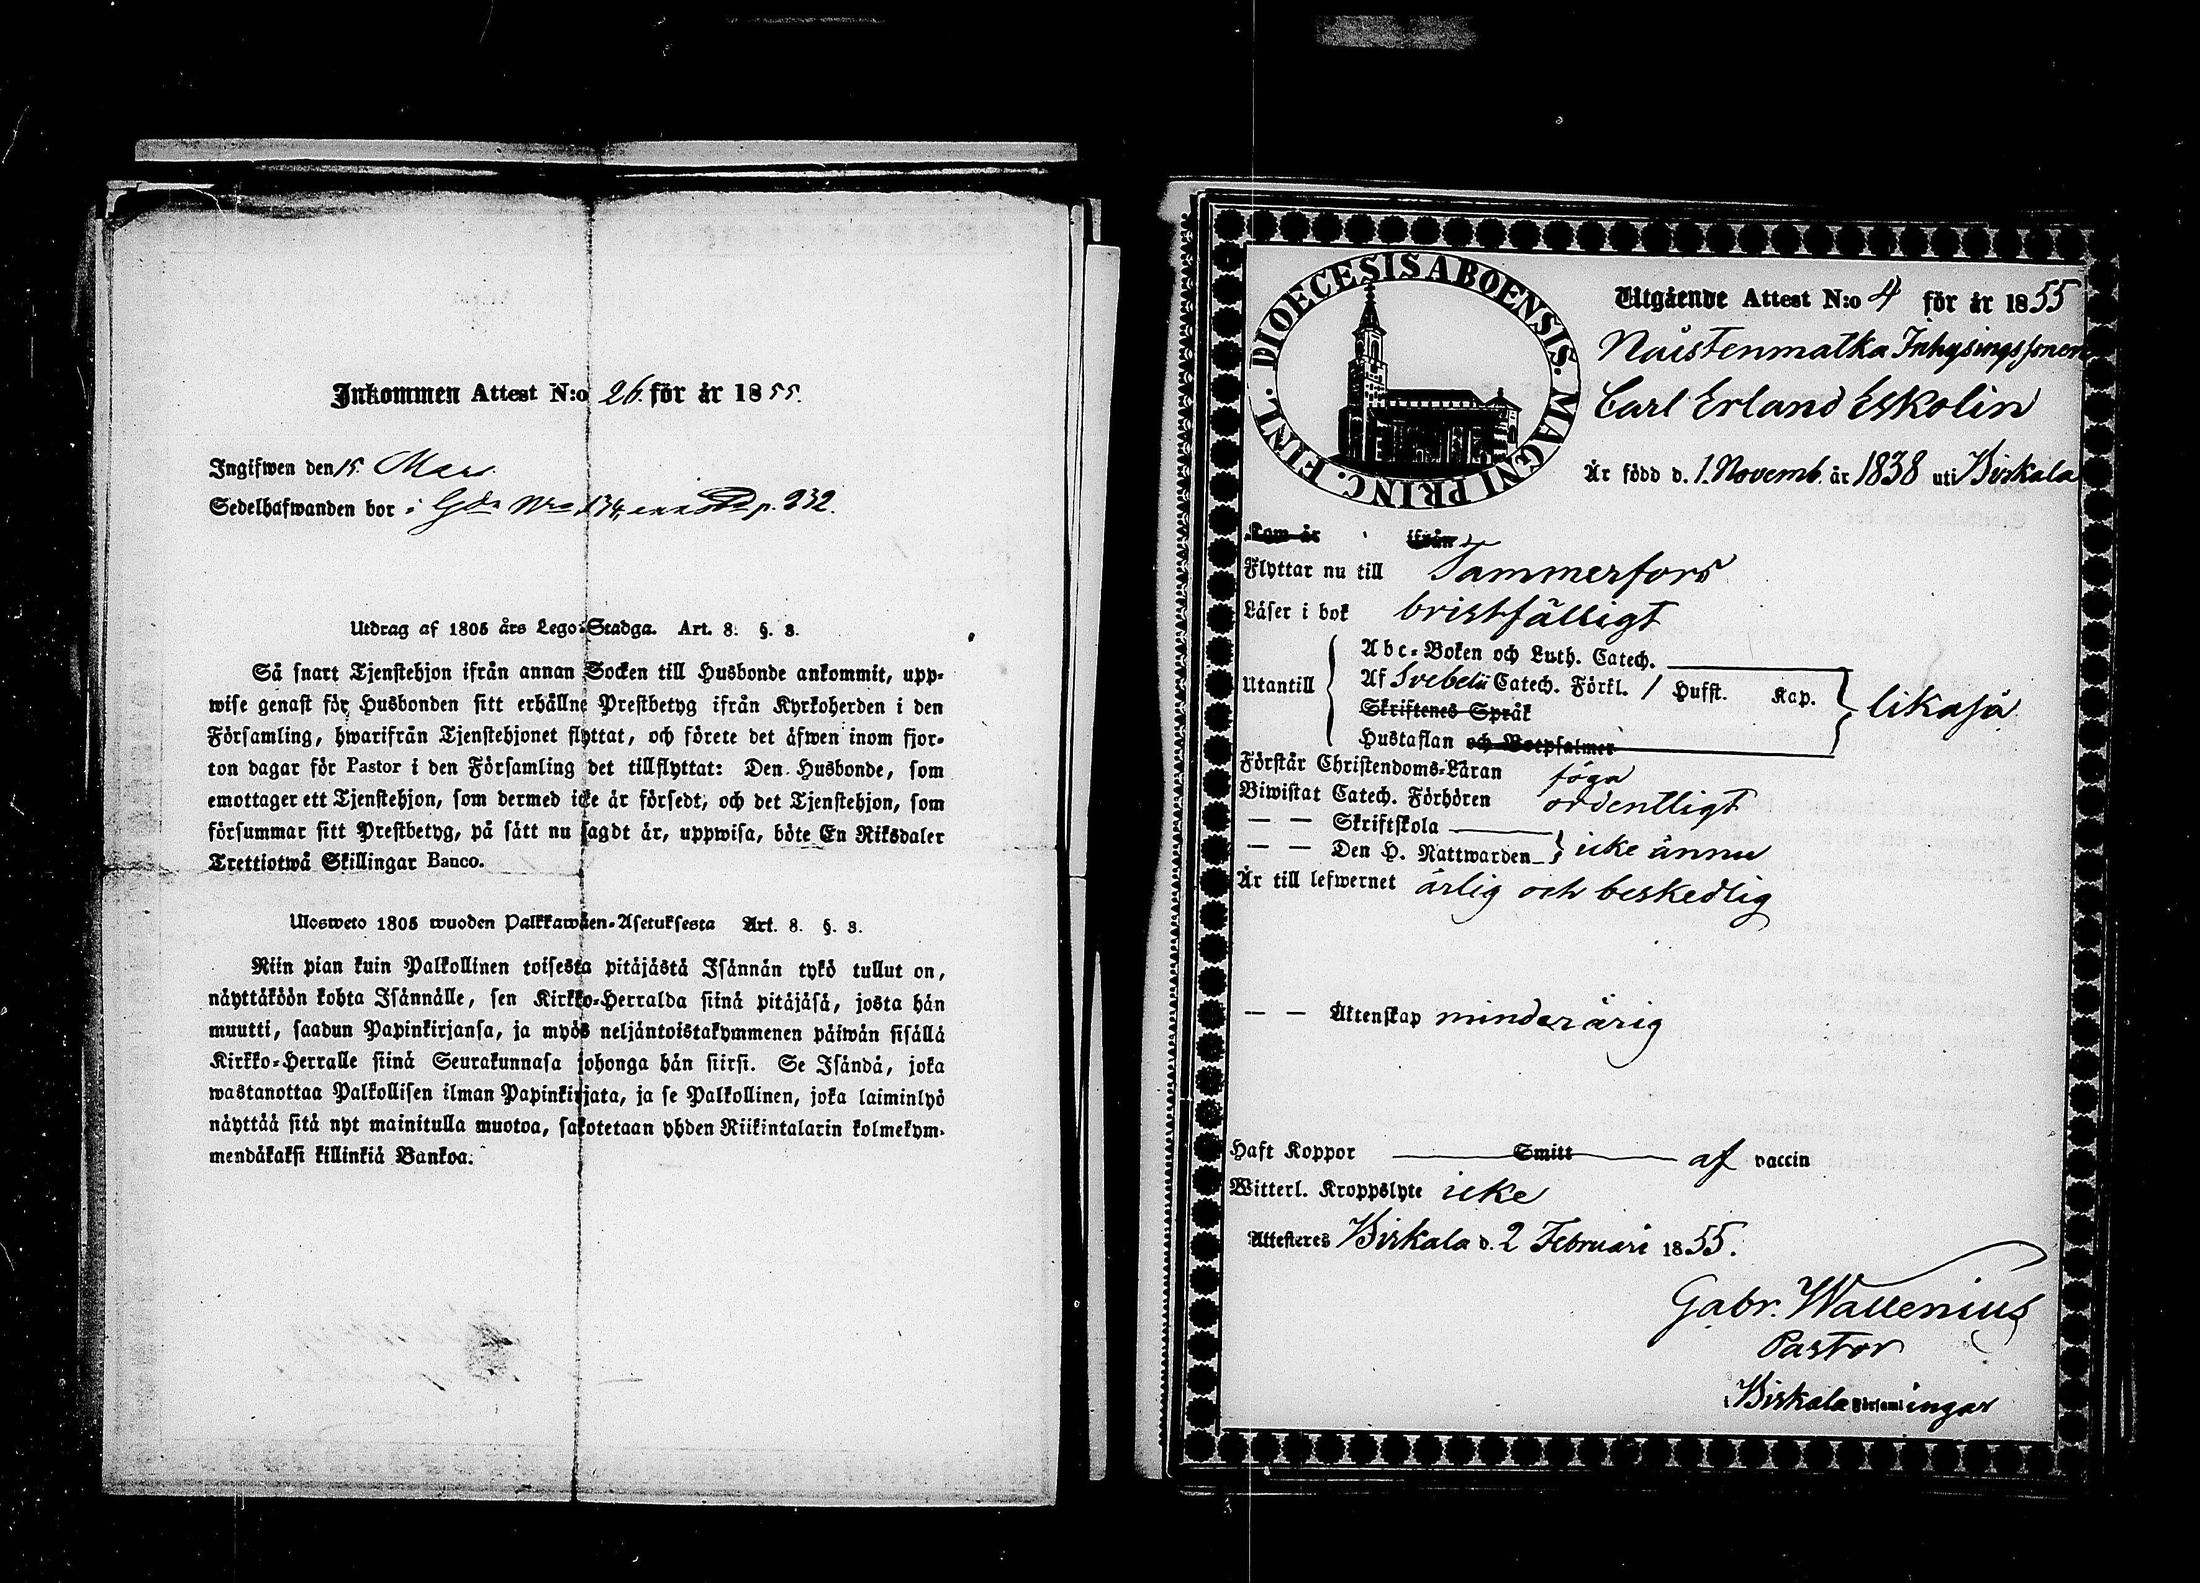 Inkommen Attest N:o 26. för år 1855.
Ingifwen den 15. Mars
Sedelhafwanden bor i Gda Nro 134, p. 232.
Utdrag af 1805 års Lego-Stadga. Art. 8. §. 3.
Så snart Tjenstehjon ifrån annan Socken till Husbonde ankommit, upp-
wise genast för Husbonden sitt erhållne Prestbetyg ifrån Kyrkoherden i den
Församling, hwarifrån Tjenstehjonet flyttat, och förete det äfwen inom fjor-
ton dagar för Pastor i den Församling det tillflyttat: Den Husbonde, som
emottager ett Tjenstehjon, som dermed icke är försedt, och det Tjenstehjon, som
försummar sitt Prestbetyg, på sätt nu sagdt är, uppwisa, böte En Riksdaler
Trettiotwå Skillingar Banco.
Ulosweto 1805 wuoden Palkkawäen-Asetuksesta Art. 8. §. 3.
Niin pian kuin Palkollinen toisesta pitäjästä Isännän tykö tullut on,
näyttäköön kohta Isännälle, sen Kirkko-Herralda siinä pitäjäsä, josta hän
muutti, saadun Papinkirjansa, ja myös neljäntoistakymmenen päiwän sisällä
Kirkko-Herralle siinä Seurakunnasa johonga hän siirsi. Se Isändä, joka
wastanottaa Palkollisen ilman Papinkirjata, ja se Palkollinen, joka laiminlyö
näyttää sitä nyt mainitulla muotoa, sakotetaan yhden Riikintalarin kolmekym-
mendäkaksi killinkiä Bankoa.
DIOECESIS ABOENSIS. MAGNI PRINC. FINL.
Utgående Attest N:o 4 för år 1855
Naistenmatka Inhysingssonen
Carl Erland Eskolin
Är född d. 1. Novemb. år 1838 uti Birkala
Kom år ifrån
Flyttar nu till Tammerfors
Läser i bok bristfälligt
Utantill
Abc-Boken och Luth. Catech.
Af Svebelii Catech. Förkl. 1 Hufst. Kap.
Skriftenes Språk
Hustaflan och Botpsalmer
likaså
Förstår Christendoms-Läran föga
Biwistat Catech. Förhören ordentligt
— — Skriftskola
— — Den H. Nattwarden icke ännu
Är till lefwernet ärlig och beskedlig
— — Äktenskap minderårig
Haft Koppor Smitt af vaccin
Witterl. Kroppslyte icke
Attesteres Birkala d. 2 Februari 1855.
Gabr. Wallenius
Pastor
i Birkala Församlingar